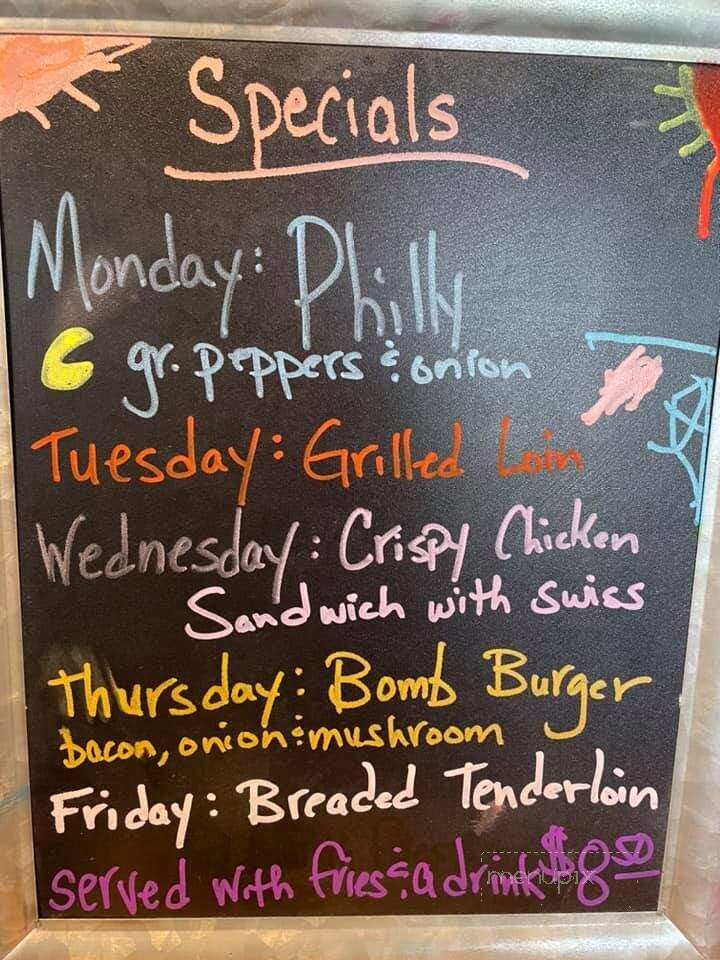 Specials
Monday: Philly
gr. peppers & onion
Tuesday: Grilled Loin
Wednesday: Crispy Chicken
Sandwich with swiss
Thursday: Bomb Burger
bacon, onion & mushroom
Friday: Breaded Tenderloin
served with fries & a drink $8.50
menupix